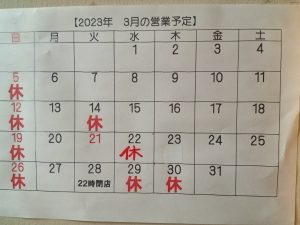 【2023年 3月の営業予定】
日 月 火 水 木 金 土
1 2 3 4
5 6 7 8 9 10 11
休
12 13 14 15 16 17 18
休 休
19 20 21 22 23 24 25
休 休
26 27 28 29 30 31
休 22時閉店 休 休